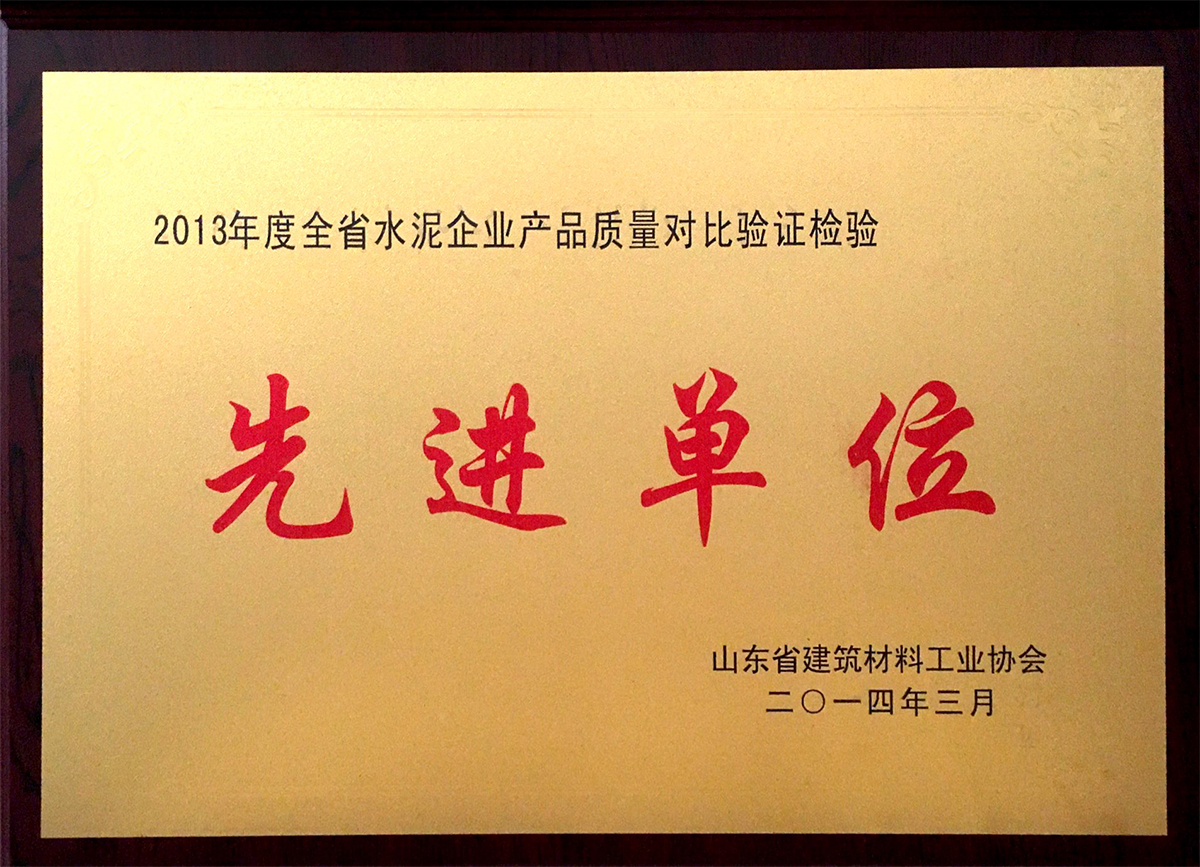 2013年度全省水泥企业产品质量对比验证检验
先进单位
山东省建筑材料工业协会
二〇一四年三月